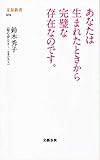 文春新書
あなたは
生まれたときから
完璧な
存在なのです。
鈴木秀子
文藝春秋